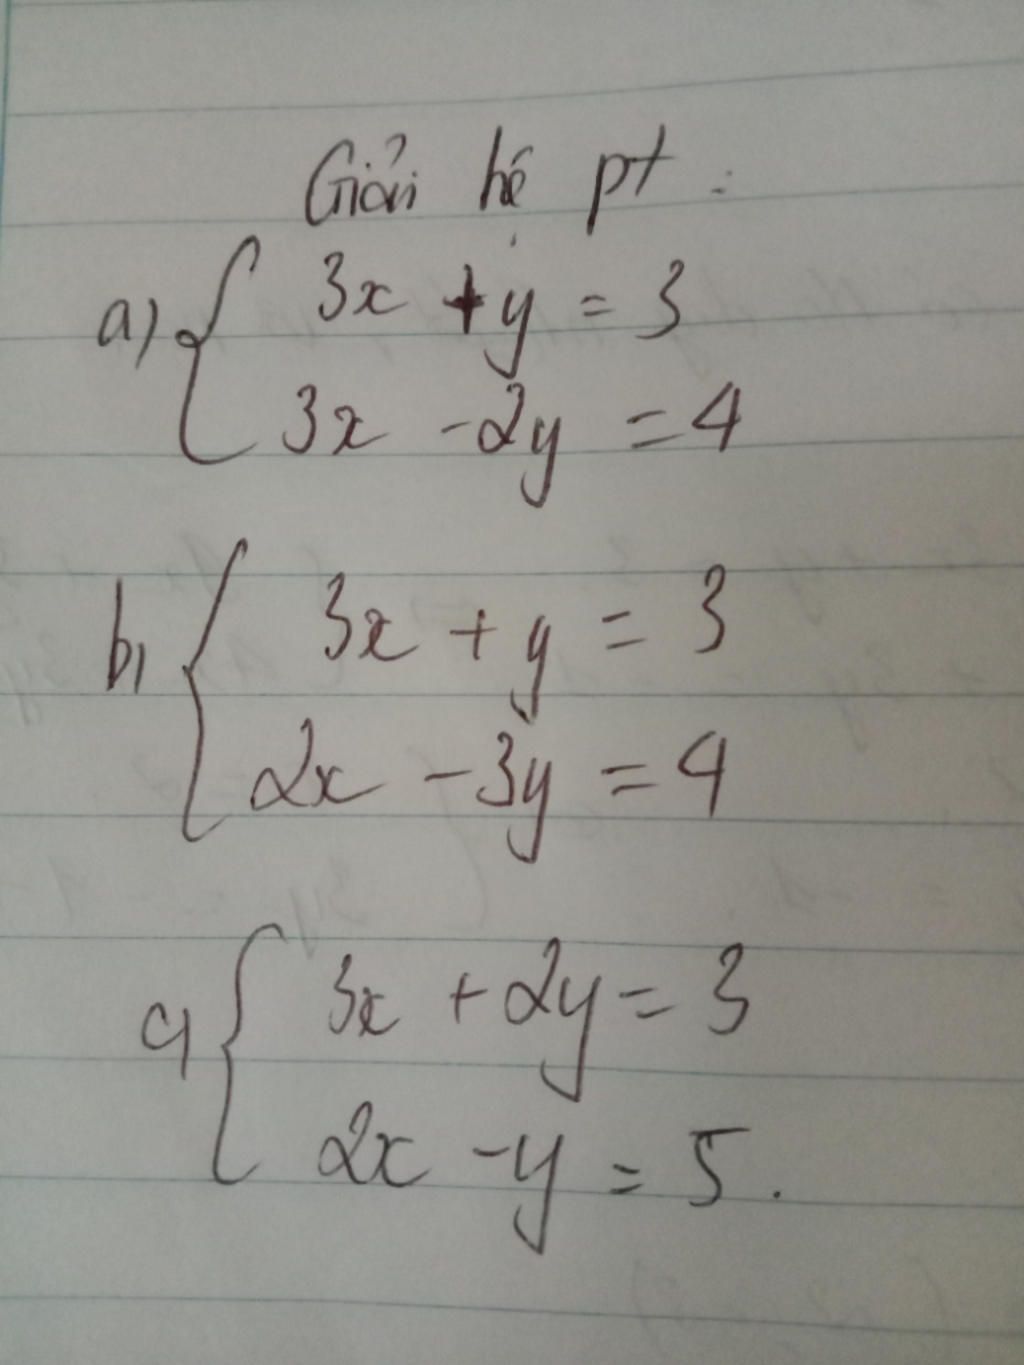 Giải hệ pt :
a) { 3x + y = 3
3x - 2y = 4
b) { 3x + y = 3
2x - 3y = 4
c) { 3x + 2y = 3
2x - y = 5.